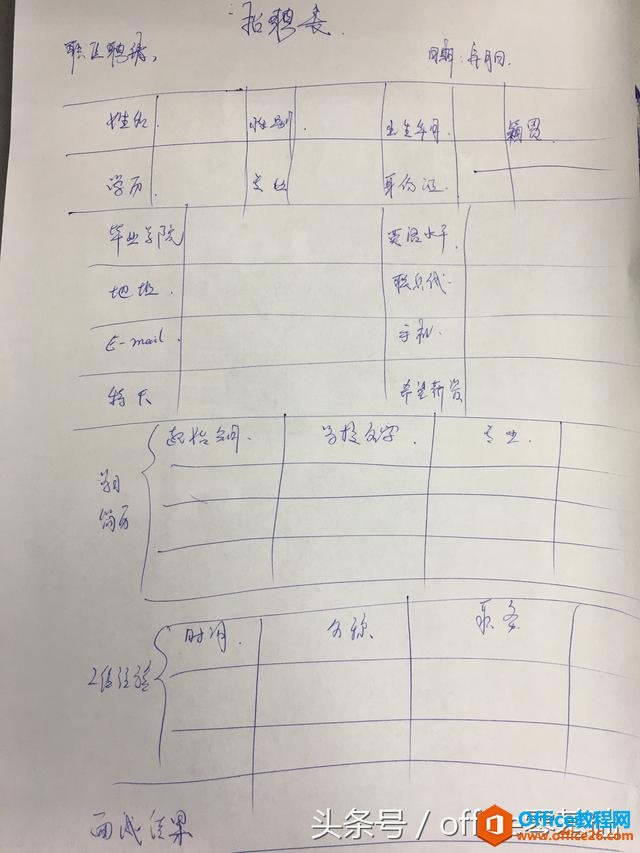 招聘表
职位聘请,
日期: 年月日.
姓名 性别 出生年月. 籍贯.
学历 专业 身份证.
毕业学院 英语水平.
地址. 联系
E-mail. 手机.
特长 希望薪资
起始 学校名字. 专业.
学习
简历
时间. 名称. 职务
工作经验
面试结果
头条号 / office
Office教程网
www.office26.com